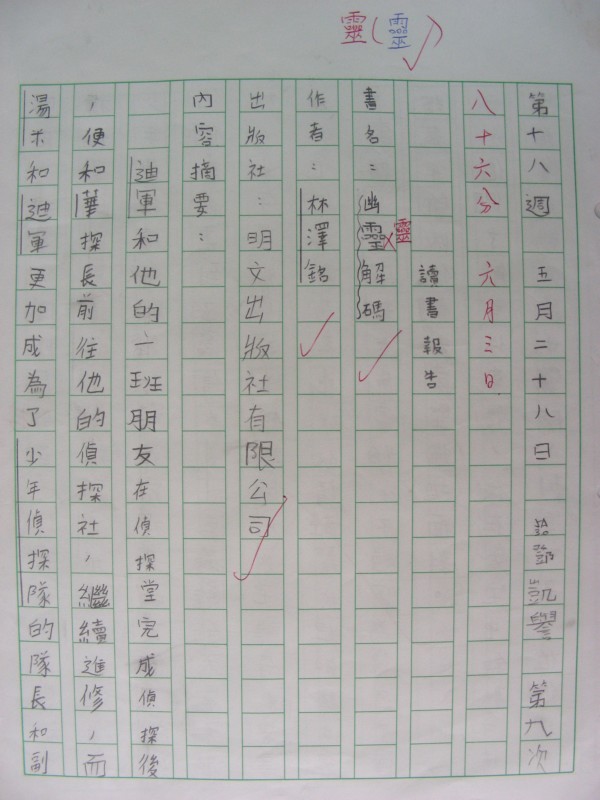 靈(靈)
第十八週 五月二十八日 凱譽 第九次
八十六分 六月三日
讀書報告
書名：幽靈解碼
靈
作者：林澤銘
出版社：明文出版社有限公司
內容摘要：
迪軍和他的一班朋友在偵探堂完成偵探後
，便和華探長前往他的偵探社，繼續進修，而
湯米和迪軍更加成為了少年偵探隊的隊長和副